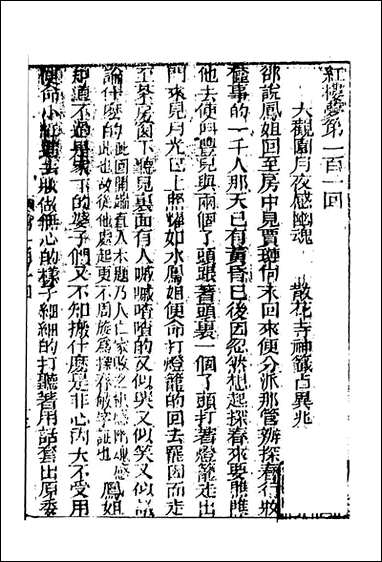 紅樓夢第一百一回
大觀園月夜感幽魂　散花寺神籤占異兆
却說鳳姐回至房中見賈璉尚未回來便分派那管辦探春行妝
奩事的一千人那天已有黃昏已後因忽然想起探春來要瞧瞧
他去便叫豐兒與兩個丫頭跟著頭裏一個丫頭打著燈籠走出
門來見月光已上照耀如水鳳姐便命打燈籠的回去罷因而走
至茶房窗下聽見裏面有人嘁嘁喳喳的又似哭又似笑又似議
論什麼的此回開編直入本題乃人亡家敗之
故後他處起更不
鳳姐
知道不過是家下的婆子們又不知搬什麼是非心內大不受用
便命小紅進去粧做無心的樣子細細的打聽著用話套出原委